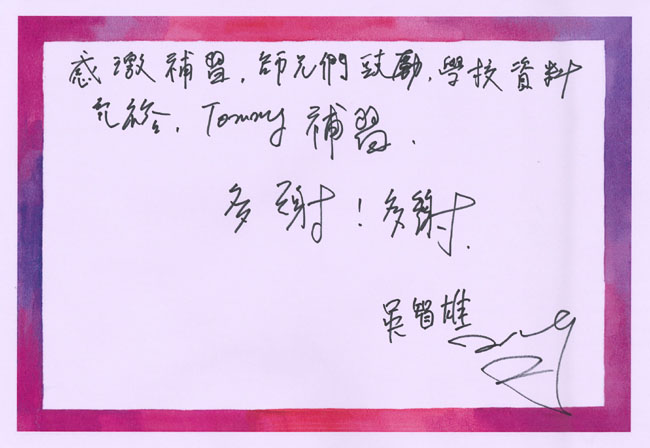 感激補習，師兄們鼓勵，學校資料
充裕，Tommy 補習．
多謝！多謝．
吳智雄